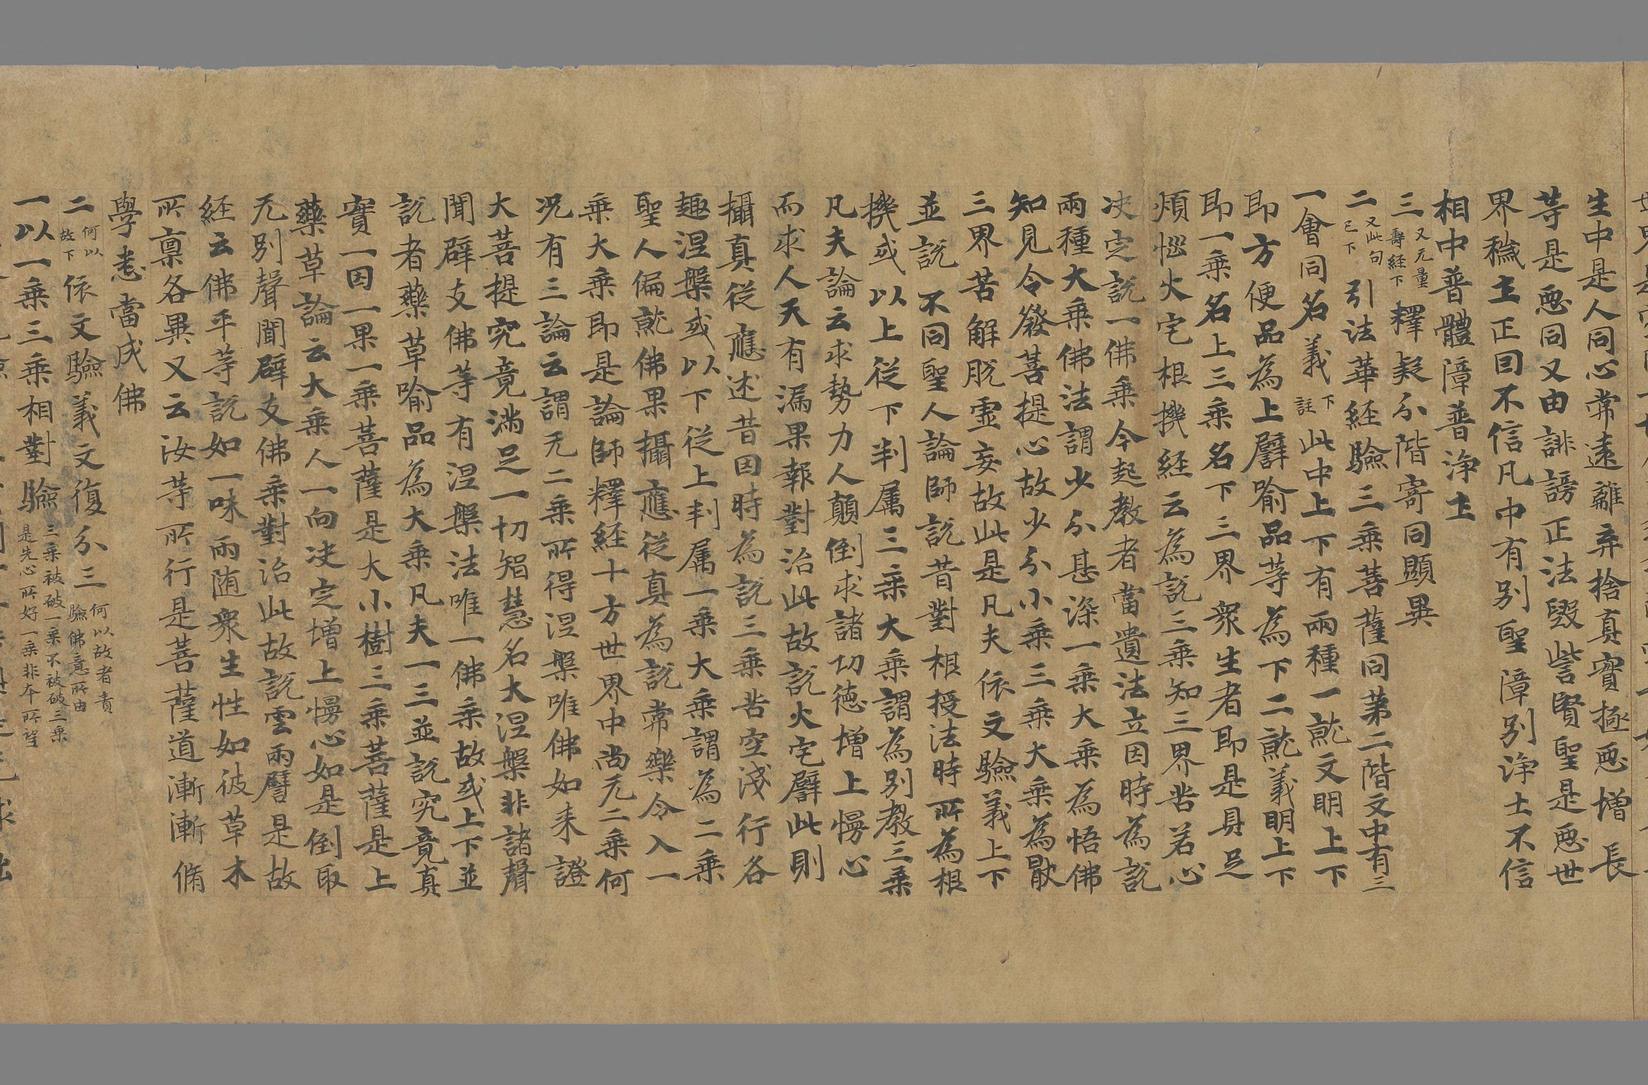 生中是人同心常遠離弃捨真實極惡增長
等是惡同又由誹謗正法毀呰賢聖是惡世
界穢土正因不信凡中有別聖障別淨土不信
相中普體障普淨土
三又无量壽經下釋疑分階寄同顯異
二又此句已下引法華經驗三乘菩薩同第二階文中有三
一會同名義下註此中上下有兩種一就文明上下
即方便品為上譬喻品等為下二就義明上下
即一乘名上三乘名下三界眾生者即是具足
煩惱火宅根機經云為說三乘知三界苦若心
決定說一佛乘今起教者當遺法立因時為說
兩種大乘佛法謂少分甚深一乘大乘為悟佛
知見令發菩提心故少分小乘三乘大乘為猒
三界苦解脫虛妄故此是凡夫依文驗義上下
並說不同聖人論師說昔對根授法時所為根
機或以上從下判属三乘大乘謂為別教三乘
凡夫論云求勢力人顛倒求諸切德增上慢心
而求人天有漏果報對治此故說火宅譬此則
攝真從應述昔因時為說三乘苦空淺行各
趣涅槃或以下從上判属一乘大乘謂為二乘
聖人偏就佛果攝應從真為說常樂令入一
乘大乘即是論師釋經十方世界中尚无二乘何
况有三論云謂无二乘所得涅槃唯佛如来證
大菩提究竟滿足一切智慧名大涅槃非諸聲
聞辟支佛等有涅槃法唯一佛乘故或上下並
說者藥草喻品為大乘凡夫一三並說究竟真
實一因一果一乘菩薩是大小樹三乘菩薩是上
藥草論云大乘人一向决定增上慢心如是倒取
无別聲聞辟支佛乘對治此故說雲雨譬是故
經云佛平等說如一味雨随衆生性如彼草木
所稟各異又云汝等所行是菩薩道漸漸脩
學悉當成佛
二何以故下依文驗義文復分三何以故者責驗佛意所由
一以一乘三乘相對驗三乘被破一乘不被破三乘是先心所好一乘非本所望